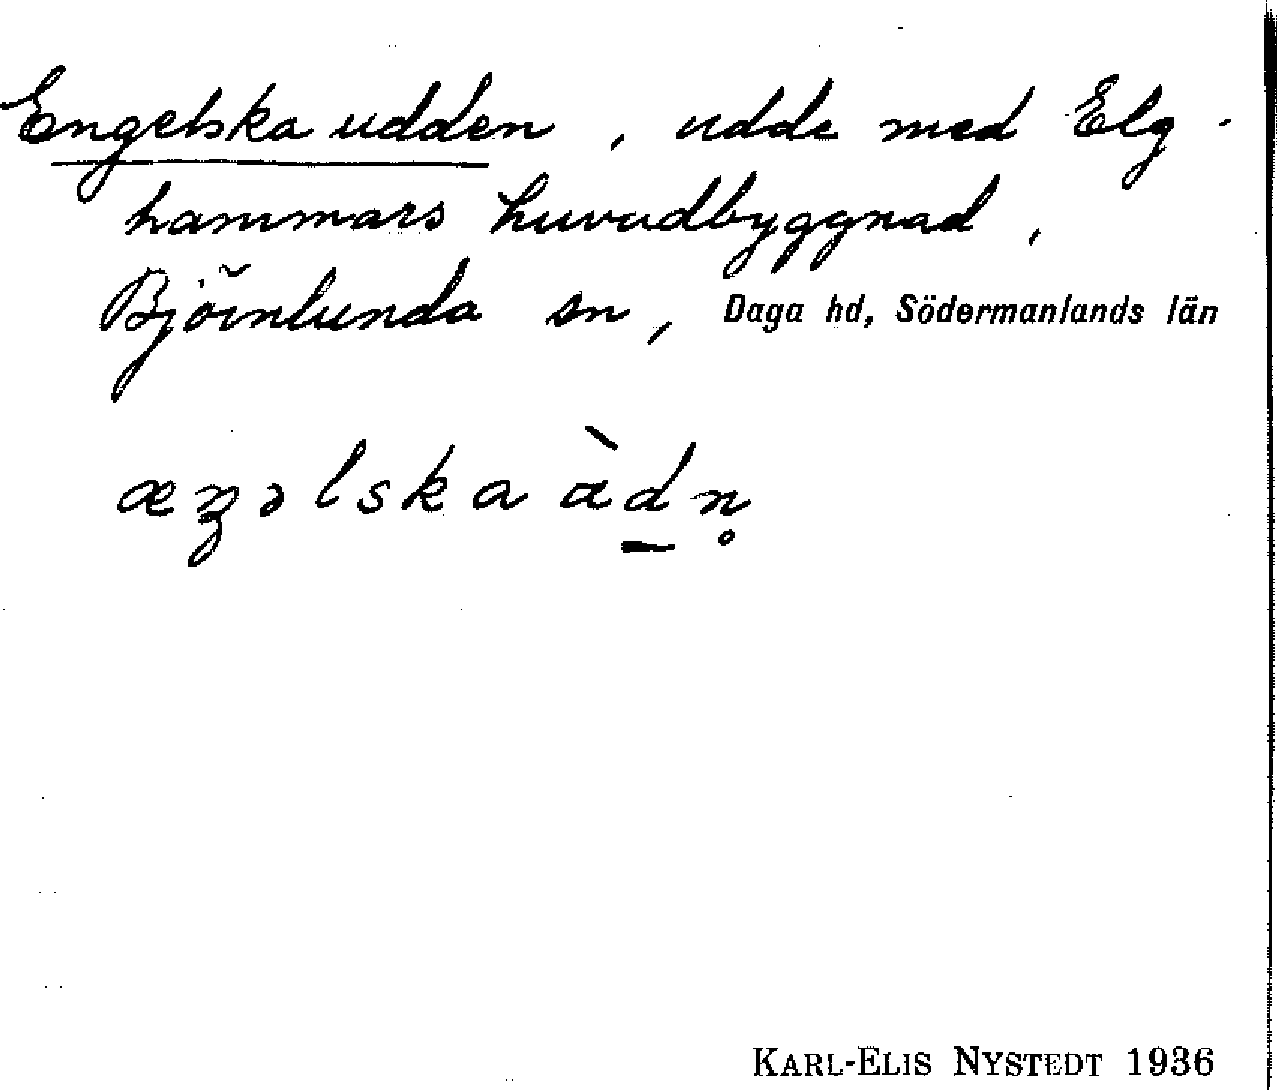 Engelska udden, udde med Elg-
hammars huvudbyggnad,
Björnlunda sn, Daga hd, Södermanlands län
KARL-ELIS NYSTEDT 1936